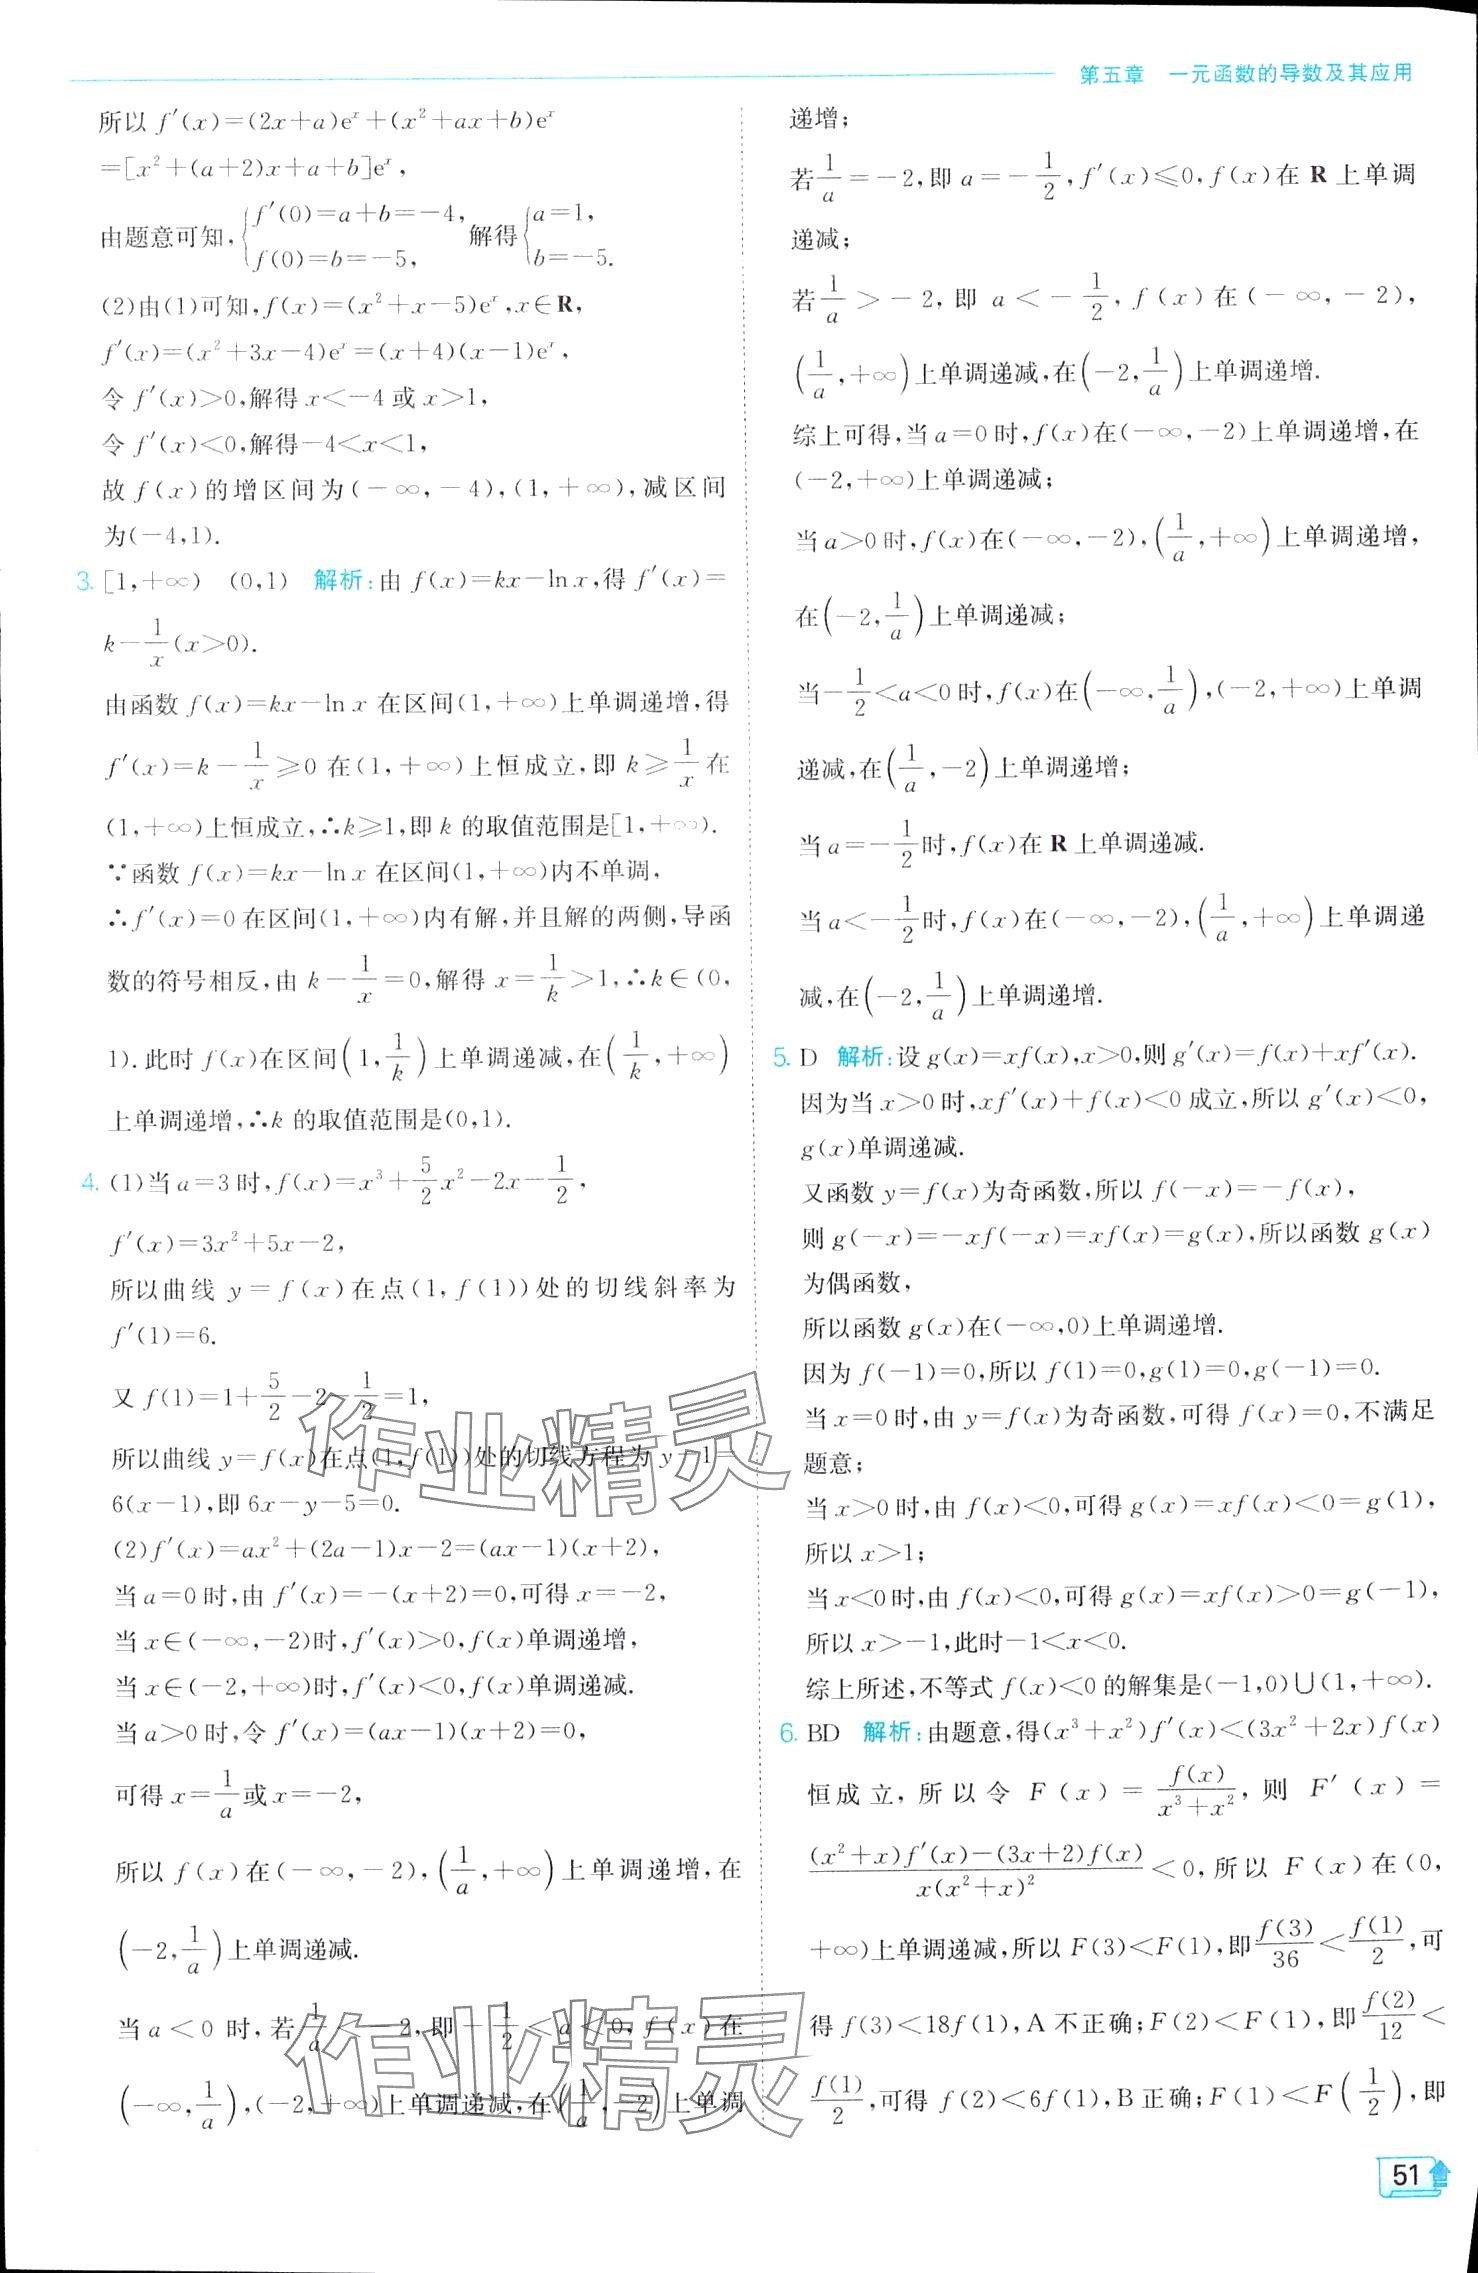 第五章　一元函数的导数及其应用
所以 f′(x)=(2x+a)eˣ+(x²+ax+b)eˣ
=[x²+(a+2)x+a+b]eˣ,
由题意可知,{f′(0)=a+b=-4, f(0)=b=-5, 解得{a=1, b=-5.
(2)由(1)可知,f(x)=(x²+x-5)eˣ,x∈R,
f′(x)=(x²+3x-4)eˣ=(x+4)(x-1)eˣ,
令 f′(x)>0,解得 x<-4 或 x>1,
令 f′(x)<0,解得-4<x<1,
故 f(x)的增区间为(-∞,-4),(1,+∞),减区间
为(-4,1).
3. [1,+∞)　(0,1)　解析:由 f(x)=kx-ln x,得 f′(x)=
k-1/x(x>0).
由函数 f(x)=kx-ln x 在区间(1,+∞)上单调递增,得
f′(x)=k-1/x≥0 在(1,+∞)上恒成立,即 k≥1/x在
(1,+∞)上恒成立,∴k≥1,即 k 的取值范围是[1,+∞).
∵函数 f(x)=kx-ln x 在区间(1,+∞)内不单调,
∴f′(x)=0 在区间(1,+∞)内有解,并且解的两侧,导函
数的符号相反,由 k-1/x=0,解得 x=1/k>1,∴k∈(0,
1).此时 f(x)在区间(1,1/k)上单调递减,在(1/k,+∞)
上单调递增,∴k 的取值范围是(0,1).
4. (1)当 a=3 时,f(x)=x³+5/2x²-2x-1/2,
f′(x)=3x²+5x-2,
所以曲线 y=f(x)在点(1,f(1))处的切线斜率为
f′(1)=6.
又 f(1)=1+5/2-2-1/2=1,
所以曲线 y=f(x)在点(1,f(1))处的切线方程为 y-1=
6(x-1),即 6x-y-5=0.
(2)f′(x)=ax²+(2a-1)x-2=(ax-1)(x+2),
当 a=0 时,由 f′(x)=-(x+2)=0,可得 x=-2,
当 x∈(-∞,-2)时,f′(x)>0,f(x)单调递增,
当 x∈(-2,+∞)时,f′(x)<0,f(x)单调递减.
当 a>0 时,令 f′(x)=(ax-1)(x+2)=0,
可得 x=1/a或 x=-2,
所以 f(x)在(-∞,-2),(1/a,+∞)上单调递增,在
(-2,1/a)上单调递减.
当 a<0 时,若1/a<-2,即-1/2<a<0,f(x)在
(-∞,1/a),(-2,+∞)上单调递减,在(1/a,-2)上单调
递增;
若1/a=-2,即 a=-1/2,f′(x)≤0,f(x)在 R 上单调
递减;
若1/a>-2,即 a<-1/2,f(x)在(-∞,-2),
(1/a,+∞)上单调递减,在(-2,1/a)上单调递增.
综上可得,当 a=0 时,f(x)在(-∞,-2)上单调递增,在
(-2,+∞)上单调递减;
当 a>0 时,f(x)在(-∞,-2),(1/a,+∞)上单调递增,
在(-2,1/a)上单调递减;
当-1/2<a<0 时,f(x)在(-∞,1/a),(-2,+∞)上单调
递减,在(1/a,-2)上单调递增;
当 a=-1/2时,f(x)在 R 上单调递减.
当 a<-1/2时,f(x)在(-∞,-2),(1/a,+∞)上单调递
减,在(-2,1/a)上单调递增.
5. D　解析:设 g(x)=xf(x),x>0,则 g′(x)=f(x)+xf′(x).
因为当 x>0 时,xf′(x)+f(x)<0 成立,所以 g′(x)<0,
g(x)单调递减.
又函数 y=f(x)为奇函数,所以 f(-x)=-f(x),
则 g(-x)=-xf(-x)=xf(x)=g(x),所以函数 g(x)
为偶函数,
所以函数 g(x)在(-∞,0)上单调递增.
因为 f(-1)=0,所以 f(1)=0,g(1)=0,g(-1)=0.
当 x=0 时,由 y=f(x)为奇函数,可得 f(x)=0,不满足
题意;
当 x>0 时,由 f(x)<0,可得 g(x)=xf(x)<0=g(1),
所以 x>1;
当 x<0 时,由 f(x)<0,可得 g(x)=xf(x)>0=g(-1),
所以 x>-1,此时-1<x<0.
综上所述,不等式 f(x)<0 的解集是(-1,0)∪(1,+∞).
6. BD　解析:由题意,得(x³+x²)f′(x)<(3x²+2x)f(x)
恒成立,所以令 F(x)=f(x)/(x³+x²),则 F′(x)=
((x²+x)f′(x)-(3x+2)f(x))/(x(x²+x)²)<0,所以 F(x)在(0,
+∞)上单调递减,所以 F(3)<F(1),即f(3)/36<f(1)/2,可
得 f(3)<18f(1),A 不正确;F(2)<F(1),即f(2)/12<
f(1)/2,可得 f(2)<6f(1),B 正确;F(1)<F(1/2),即
作业精灵
作业精灵
51